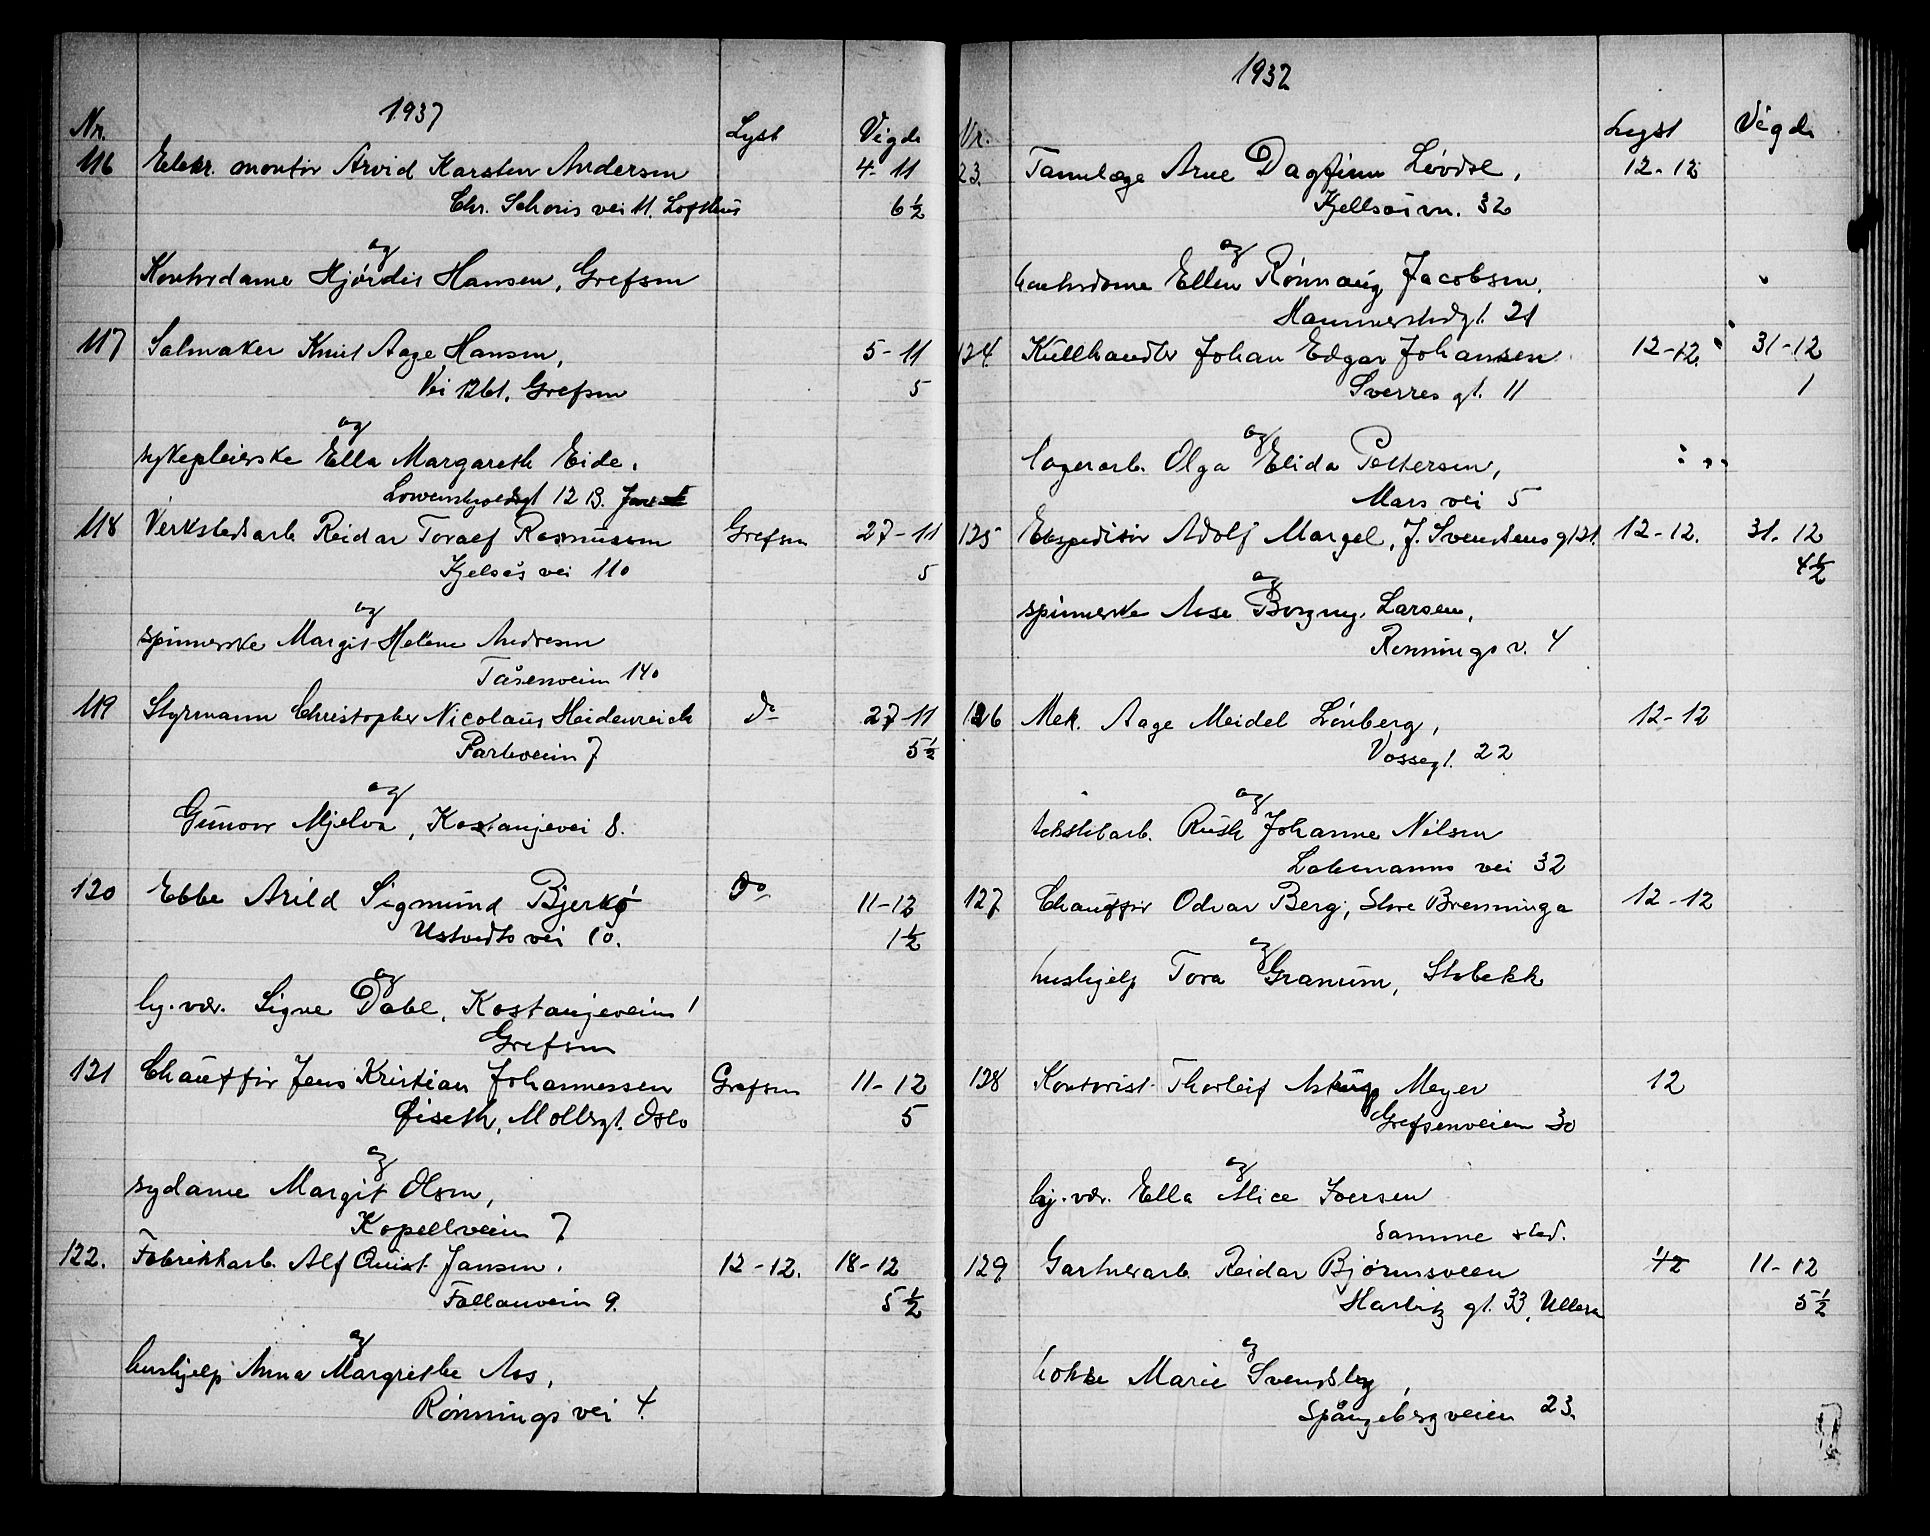 1937
Nr. Lyst Vigde
116 Elektr. montør Arvid Karsten Andersen 4-11
Chr. Schøris vei 11. Lofthus 6 ½
og
Kontordame Hjørdis Hansen, Grefsen
117 Salmaker Knut Aage Hansen, 5-11
Vei 1261, Grefsen 5
og
sykepleierske Ella Margareth Eide.
Løwenskjoldsgt 12 B.
118 Verkstedsarb. Reidar Toralf Rasmussen Grefsen 27-11
Kjelsås vei 110 5
og
spinnerske Margit Helene Andresen
Tåsenveien 140
119 Styrmann Christopher Nicolaus Heidenreich do 27-11
Parkveien 7 5½
og
Gunvor Mjelva, Kastanjevei 8.
120 Ebbe Arild Sigmund Bjerkø do 11-12
Ustvedts vei 10. 1½
og
hj. vær. Signe Dahl, Kastanjeveien 1
Grefsen
121 Chauffør Jens Kristian Johannessen Grefsen 11-12
Øiseth, Møllergt. Oslo 5
og
sydame Margit Olsen,
Kapellveien 7
122. Fabrikkarb. Alf Quist Jansen. 12-12. 18-12
Fallanveien 9. 5½
og
hushjelp Anna Margrethe Aas,
Rønnings vei 4.
1932
Nr. Lyst Vigde
23. Tannlæge Arne Dagfinn Løvdal, 12-12
Kjellsåsvn. 32
og
kontordame Ellen Rønnaug Jacobsen,
Hammerstadgt. 21
124. Kullhandler Johan Edgar Johansen 12-12. 31-12
Sverres gt. 11 1
og
lagerarb. Olga Elida Pettersen,
Mars vei 5
125 Ekspeditør Adolf Margel, J. Svendsens gt 21. 12-12. 31-12
4½
og
spinnerske Aase Borgny Larsen,
Rønnings v. 4
126 Mek. Aage Meidel Lönberg, 12-12
Vossegt. 22
og
tekstilarb. Ruth Johanne Nilsen
Lachmanns vei 32
127 Chauffør Odvar Berg, Store Brenninga 12-12
og
hushjelp Tora Granum, Stabekk
128 Kontorist Thorleif Astrup Meyer 12
Grefsenveien 30
og
hj. vær. Ella Alice Iversen
Samme sted.
129 Gartnerarb. Reidar Bjørnsveen 12 11-12
Harbitz gt. 33, Ullern 5½
og
kokke Marie Svendsby,
Spångebergveien 23.